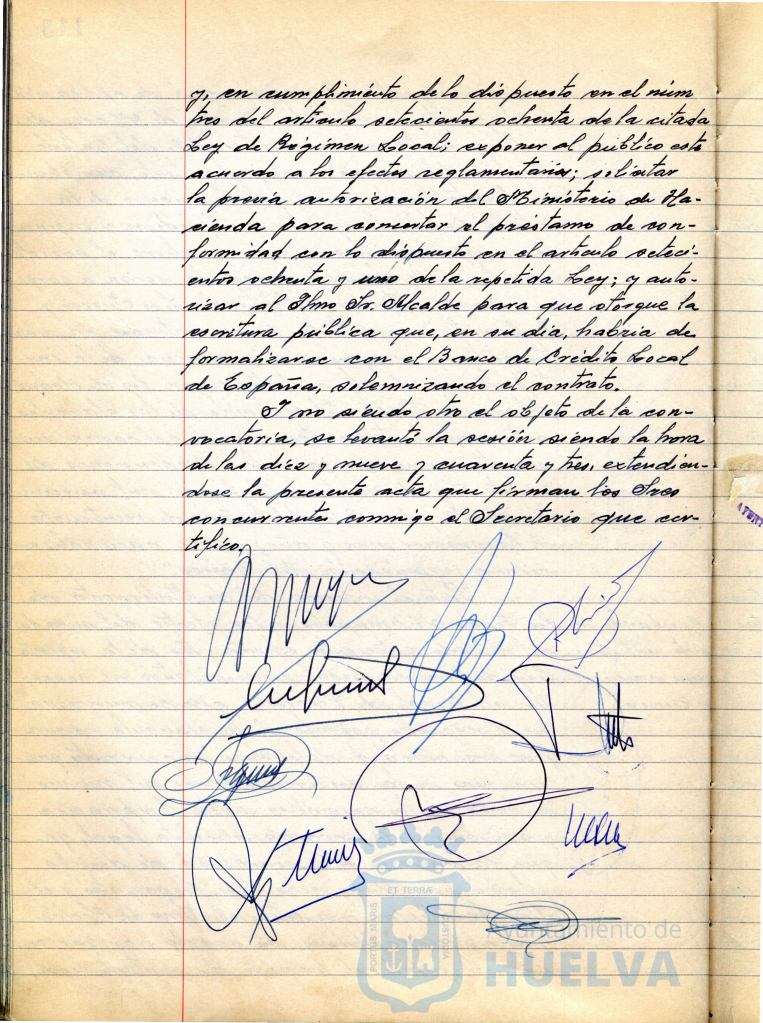 y, en cumplimiento de lo dispuesto en el núm
tres del artículo setecientos ochenta de la citada
Ley de Régimen Local; exponer al público este
acuerdo a los efectos reglamentarios; solicitar
la previa autorización del Ministerio de Ha-
cienda para concertar el préstamo de con-
formidad con lo dispuesto en el artículo seteci-
entos ochenta y uno de la repetida Ley; y auto-
rizar al Ilmo Sr. Alcalde para que otorgue la
escritura pública que, en su día, habría de
formalizarse con el Banco de Crédito Local
de España, solemnizando el contrato.
Y no siendo otro el objeto de la con-
vocatoria, se levantó la sesión siendo la hora
de las diez y nueve y cuarenta y tres, extendién-
dose la presente acta que firman los Sres
concurrentes conmigo el Secretario que cer-
tifico.
PORTUS MARIS ET TERRÆ CUSTODIA
Ayuntamiento de
HUELVA